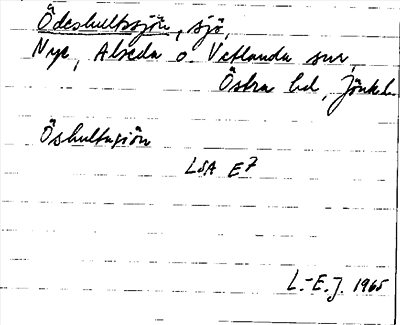 Ödeshultssjön, sjö,
Nye, Alseda o. Vetlanda snr,
Östra hd, Jönk. l.
Öshultasjön
LSA E7
L.-E. J. 1965